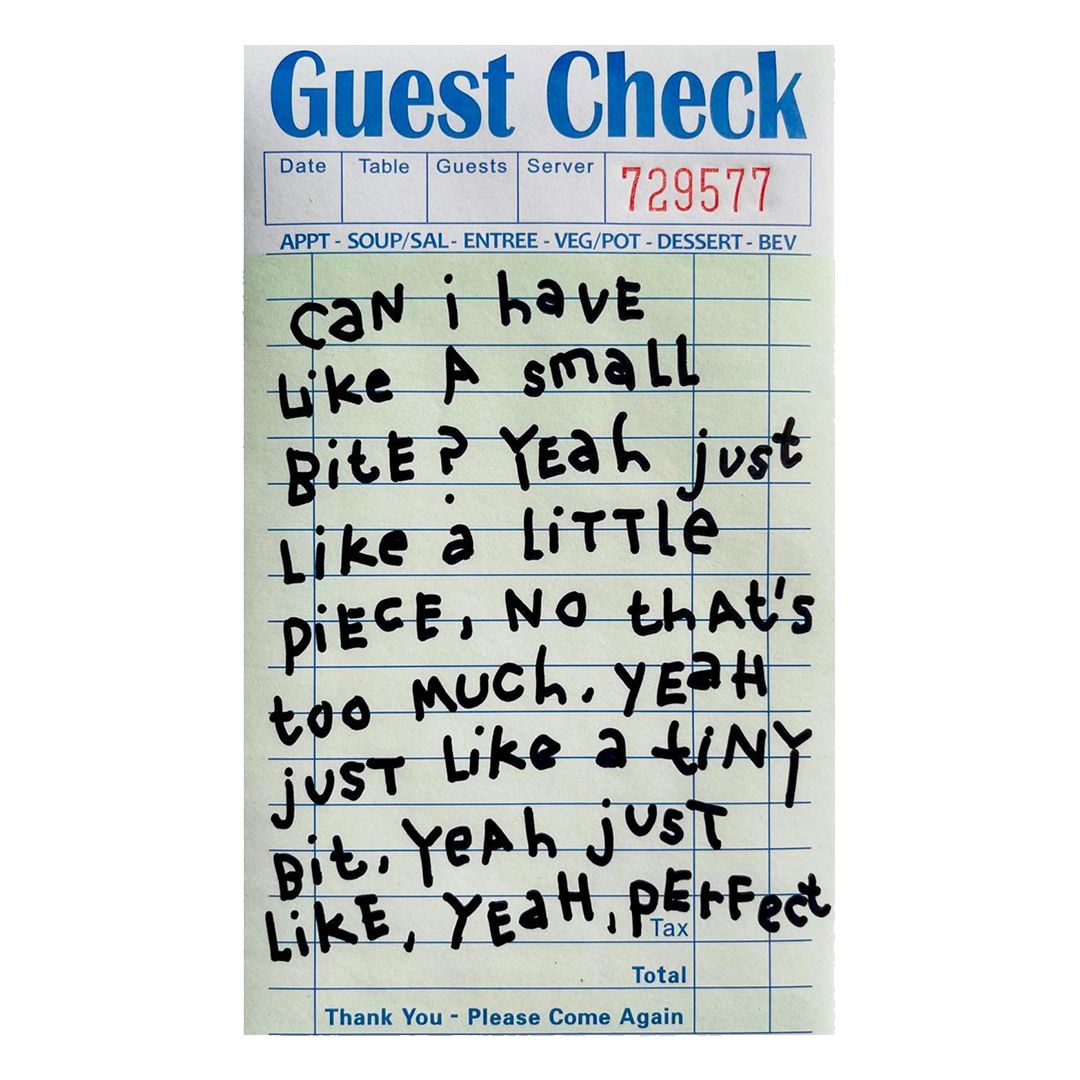 Guest Check
Date Table Guests Server 729577
APPT - SOUP/SAL - ENTREE - VEG/POT - DESSERT - BEV
caN i havE
Like A smaLL
BitE? YEah just
Like a LiTTle
piECE, NO thAt's
too Much. YEaH
jUST Like a tiNY
Bit. YeAh jUsT
LiKE, YEaH, pErFect
Tax
Total
Thank You - Please Come Again